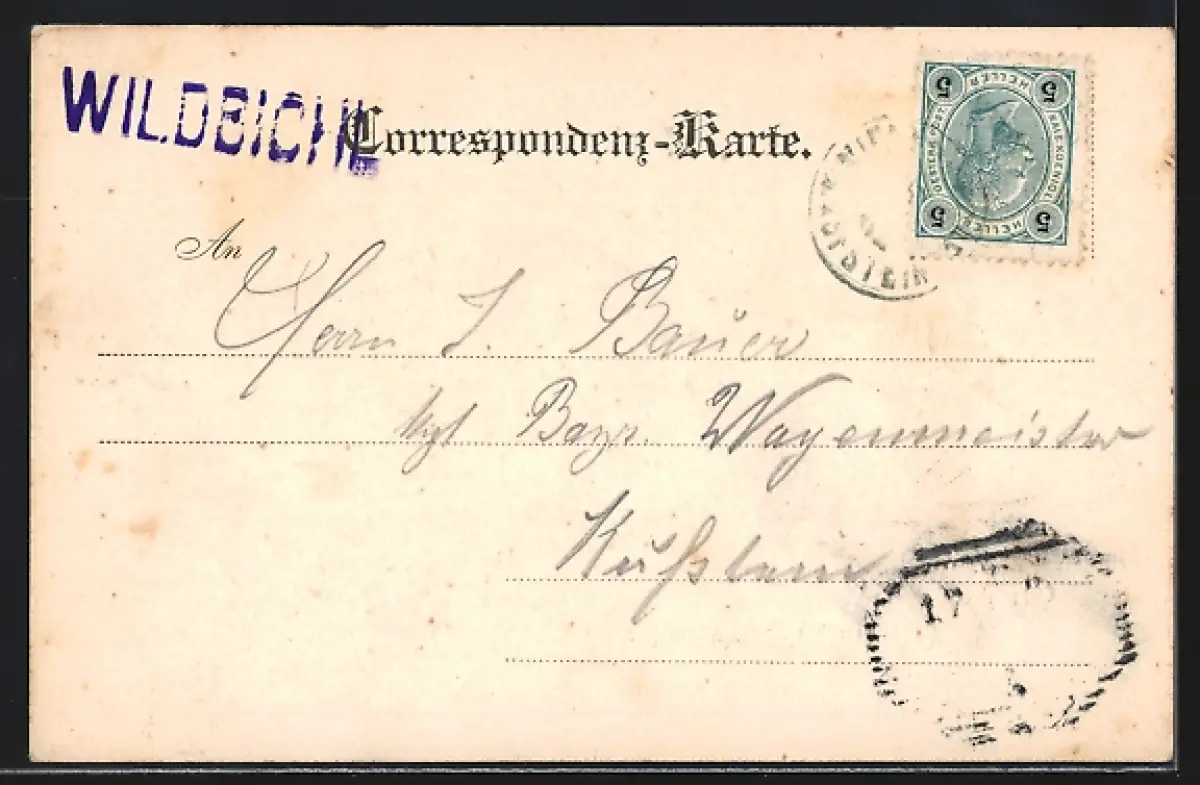 WILDBICHL
Correspondenz-Karte.
5 HELLER 5
5 HELLER 5
An
Herrn J. Bauer
kgl Bayr. Wagenmeister
Kufstein
17